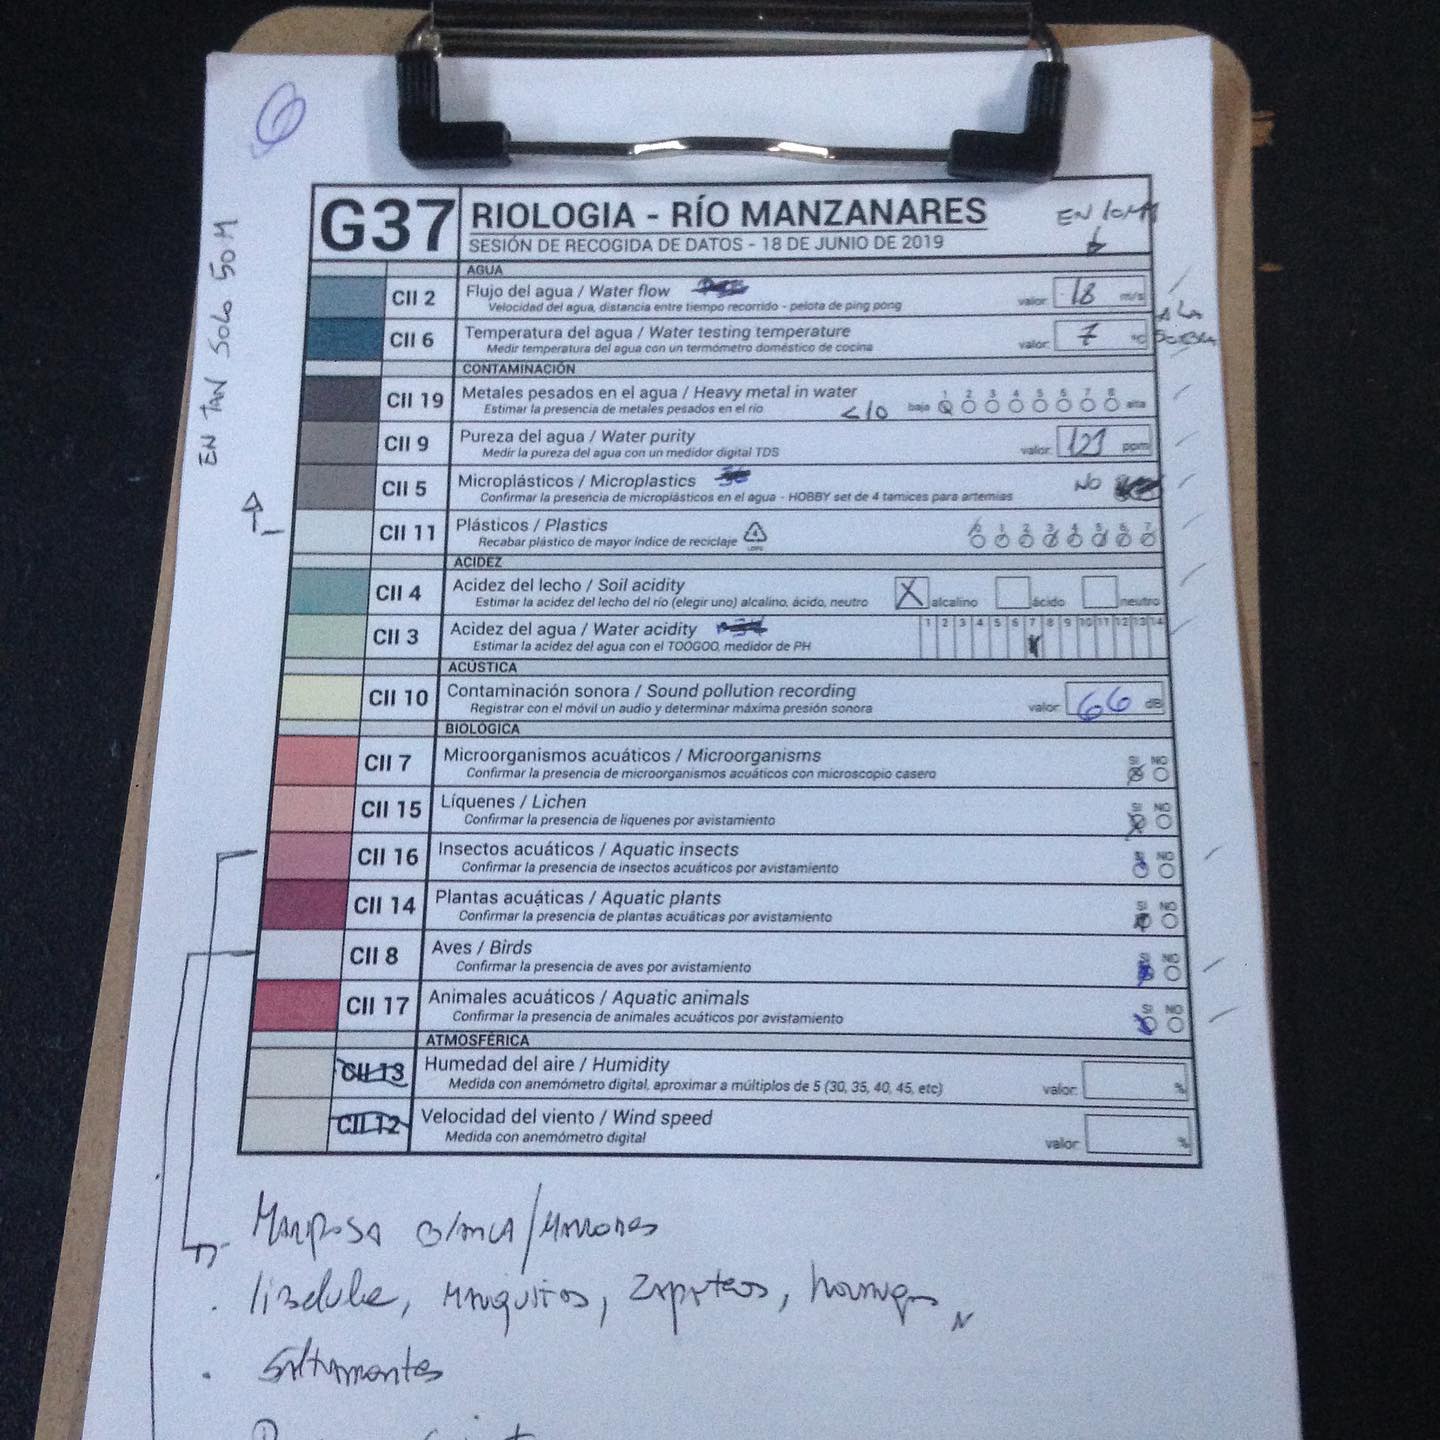 6
EN TAN SOLO 50M
G37
RIOLOGIA - RÍO MANZANARES
SESIÓN DE RECOGIDA DE DATOS - 18 DE JUNIO DE 2019
EN 10M
AGUA
CII 2 Flujo del agua / Water flow
Velocidad del agua, distancia entre tiempo recorrido - pelota de ping pong valor 18 m/s
CII 6 Temperatura del agua / Water testing temperature
Medir temperatura del agua con un termómetro doméstico de cocina valor 7 ºC
A LA
CONTAMINACIÓN
CII 19 Metales pesados en el agua / Heavy metal in water
Estimar la presencia de metales pesados en el río <10 baja 1 2 3 4 5 6 7 8 alta
CII 9 Pureza del agua / Water purity
Medir la pureza del agua con un medidor digital TDS valor 121 ppm
CII 5 Microplásticos / Microplastics
Confirmar la presencia de microplásticos en el agua - HOBBY set de 4 tamices para artemias NO
CII 11 Plásticos / Plastics
Recabar plástico de mayor índice de reciclaje 4 LDPE 0 1 2 3 4 5 6 7
ACIDEZ
CII 4 Acidez del lecho / Soil acidity
Estimar la acidez del lecho del río (elegir uno) alcalino, ácido, neutro X alcalino ácido neutro
CII 3 Acidez del agua / Water acidity 1 2 3 4 5 6 7 8 9 10 11 12 13 14
Estimar la acidez del agua con el TOOGOO, medidor de PH
ACÚSTICA
CII 10 Contaminación sonora / Sound pollution recording
Registrar con el móvil un audio y determinar máxima presión sonora valor 66 dB
BIOLÓGICA
CII 7 Microorganismos acuáticos / Microorganisms SI NO
Confirmar la presencia de microorganismos acuáticos con microscopio casero
CII 15 Líquenes / Lichen SI NO
Confirmar la presencia de líquenes por avistamiento
CII 16 Insectos acuáticos / Aquatic insects SI NO
Confirmar la presencia de insectos acuáticos por avistamiento
CII 14 Plantas acuáticas / Aquatic plants SI NO
Confirmar la presencia de plantas acuáticas por avistamiento
CII 8 Aves / Birds SI NO
Confirmar la presencia de aves por avistamiento
CII 17 Animales acuáticos / Aquatic animals SI NO
Confirmar la presencia de animales acuáticos por avistamiento
ATMOSFÉRICA
CII 13 Humedad del aire / Humidity
Medida con anemómetro digital, aproximar a múltiplos de 5 (30, 35, 40, 45, etc) valor %
CII 12 Velocidad del viento / Wind speed
Medida con anemómetro digital valor %
MARIPOSA BLANCA/MARRONES
libelula, MOSQUITOS, ZAPATEROS, hormigas,
SALTAMONTES